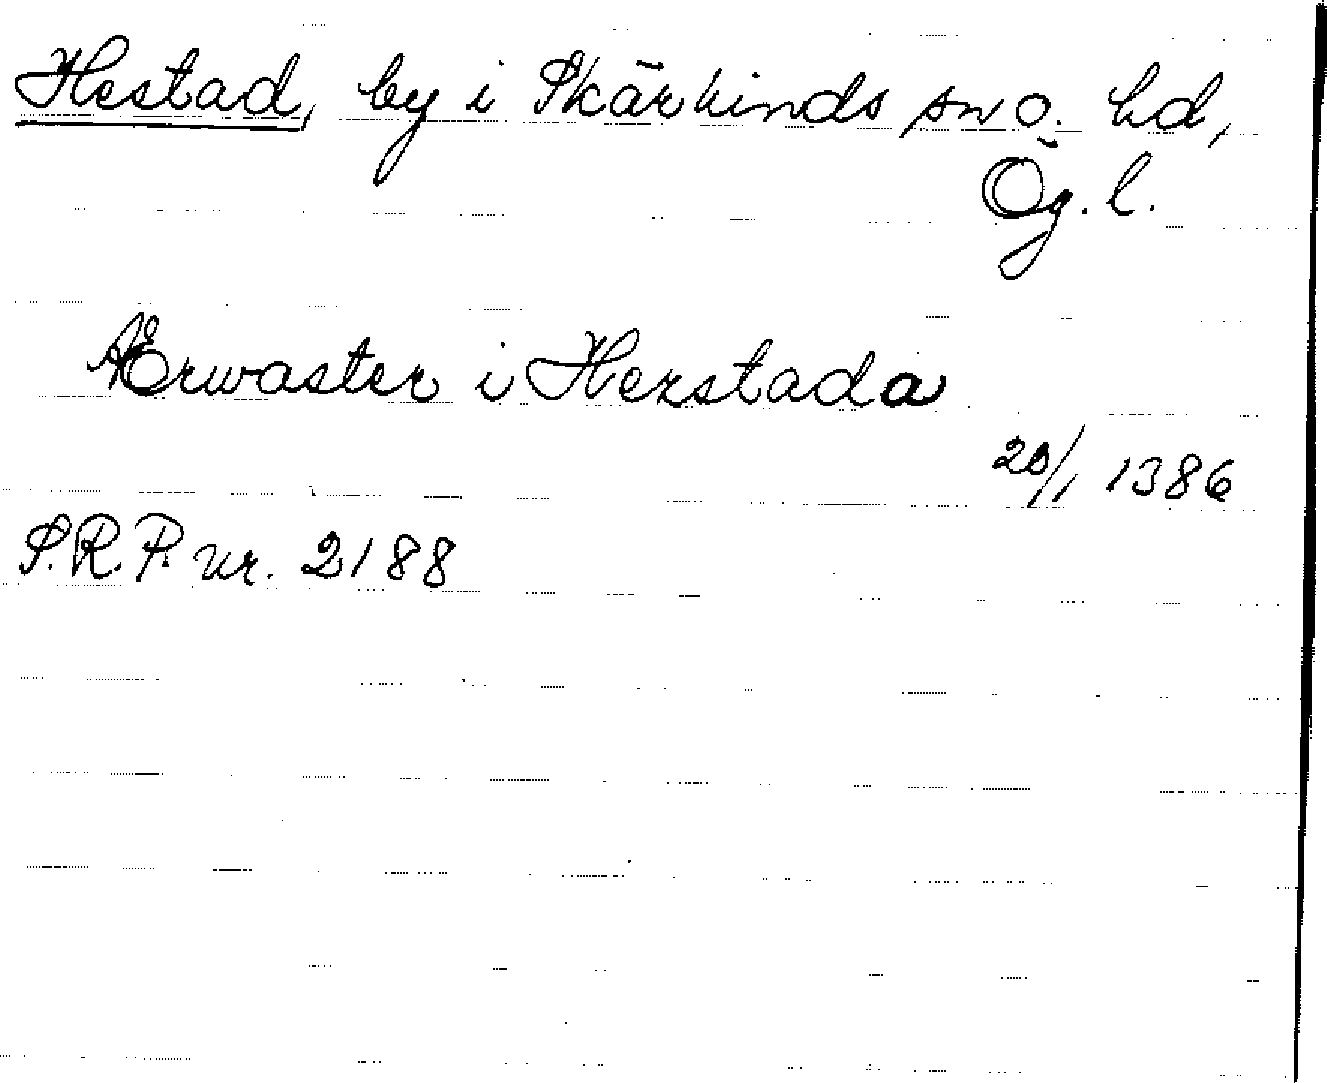 Hestad, by i Skärkinds sn o. hd,
Ög. l.
Ærwaster i Herstada
20/1 1386
S.R.P. nr. 2188